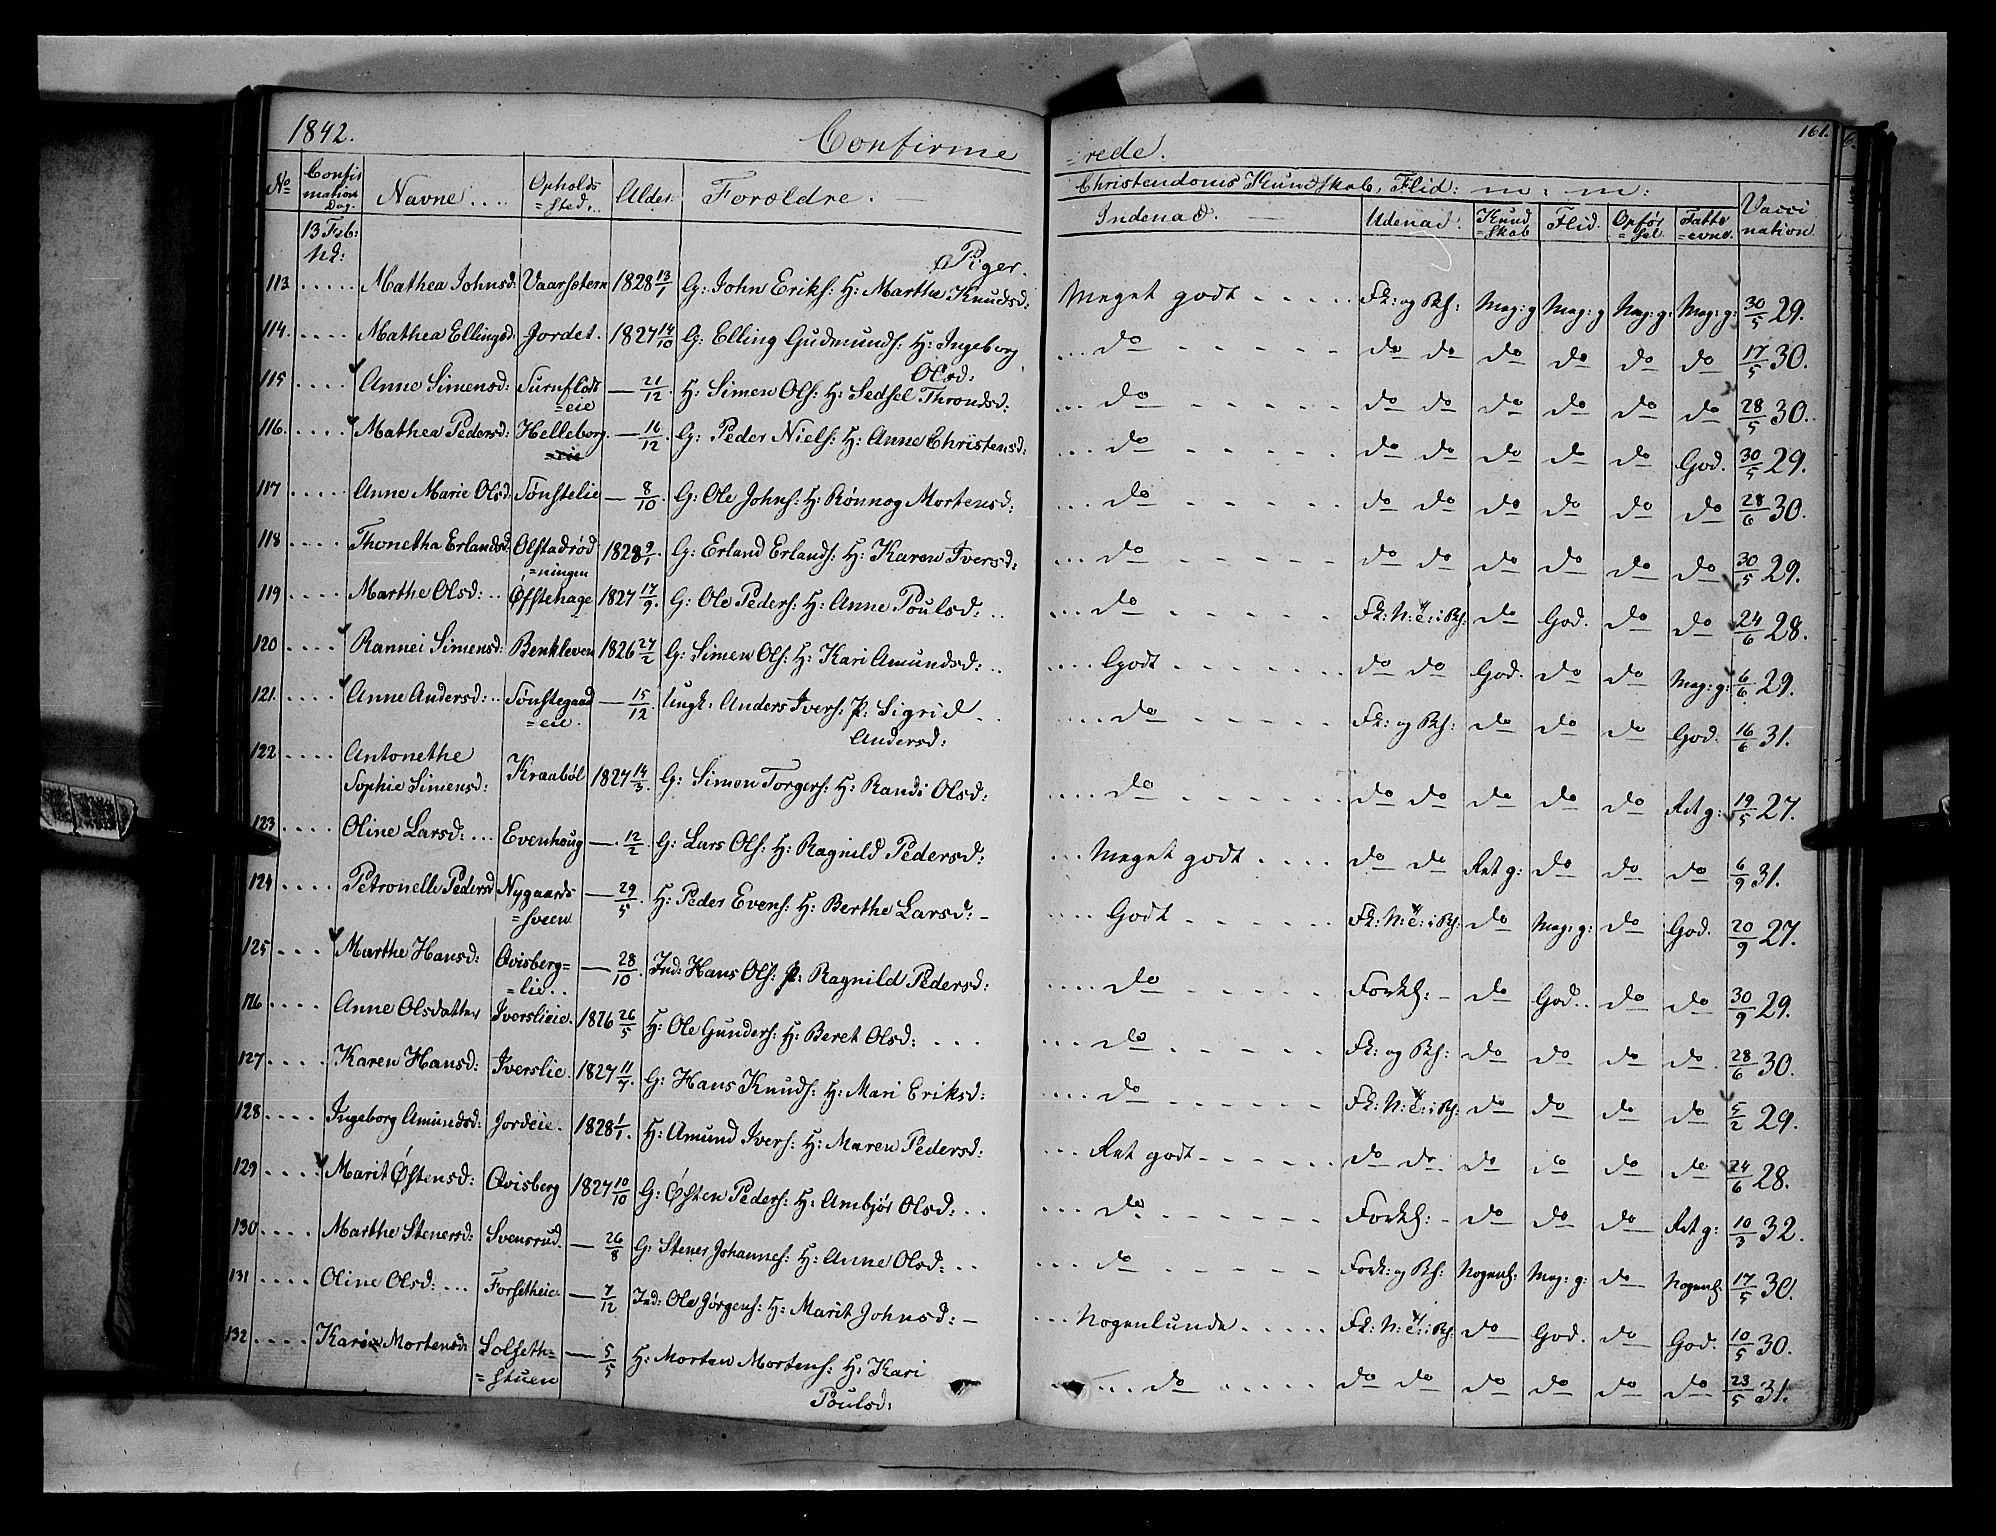 1842. Confirme
=rede. 161.
No Confirmation Dag. Navne.... Opholds=sted. Alder. Forældre.
Christendoms Kundskab, Flid: m: m:
Indenad. Udenad. Kund=skab Flid. Opfør=sel. Fatte=evne. Vaccination
13 Feb:
Piger.
113. ..... Mathea Johnsd: Vaarsætern 1828 13/1 G: John Eriks: H: Marthe Knudsd: Meget godt ..... Fk: og Bh: Meg: g Meg: g Meg: g: Meg: g: 30/5 29.
114. .... Mathea Ellingsd: Jordet. 1827 14/10 G: Elling Gudmunds: H: Ingeborg Olsd: ... do do do do do do do 17/5 30.
115 .... Anne Simensd: Surnflodt=eie — 21/12 H: Simen Ols: H: Sedsel Throndsd: ... do do do do do do do 28/5 30.
116. .... Mathea Pedersd: Helleborg. — 16/12 G: Peder Niels: H: Anne Christensd: ... do do do do do do God. 30/5 29.
117 .... Anne Marie Olsd: Sønstelie — 8/10 G: Ole Johns: H: Rønnog Mortensd: ... do do do do do do do 28/6 30.
118 .... Thonetha Erlandsd: Olstadrød=ningen 1828 9/1. G: Erland Erlands: H: Karen Iversd: ... do do do do do do do 30/5 29.
119 .... Marthe Olsd: .. Øfstehage 1827 17/9. G: Ole Peders: H: Anne Poulsd: .. ... do Fk: N: e: i Bh: do God. do do 24/6 28.
120 .... Rannei Simensd: Benkleven 1826 27/2 G: Simen Ols: H: Kari Amundsd: .. .... Godt do do God. do do Meg: g: 6/6 29.
121. .... Anne Andersd: .. Sønstegaard=eie. — 15/12 Ungk: Anders Ivers: P: Sigrid Andersd: .... do Fk: og Bh: do do do God. 16/6 31.
122 .... Antonethe Sophie Simensd: Kraabøl 1827 14/3. G: Simen Torgers: H: Randi Olsd: .... do do do do do do Ret g: 19/5 27.
123 .... Oline Larsd: ... Evenhoug — 12/2 G: Lars Ols: H: Ragnild Pedersd: ... Meget godt .... do do Ret g: do do do 6/9 31.
124 .... Petronelle Pedersd Nygaards=sveen — 29/5. H: Peder Evens: H: Berthe Larsd: .... Godt Fk: N: e: i Bh: do Meg: g: do God. 20/9 27.
125 .... Marthe Hansd: Qvisberg=lie .. — 28/10. Ind: Hans Ols: P: Ragnild Pedersd: .... do Forkl: do God. do do 30/9 29.
126 .... Anne Olsdatter Iverslieie. 1826 26/5 H: Ole Gunders: H: Beret Olsd: .... ... do Fk: og Bh: do do do do 28/6 30.
127 .... Karen Hansd: Iverslie. 1827 11/7. G: Hans Knuds: H: Mari Eriksd: ... do Fk: N: e: i Bh: do do do do 5/2 29.
128 .... Ingeborg Amundsd: Jordeie. 1828 1/1. H: Amund Ivers: H: Maren Pedersd: ... Ret godt do do. do do do do 24/6 28.
129 .... Marit Østensd: Qvisberg 1827 10/10 G: Østen Peders: H: Ambjør Olsd: .. ... do Forkl: do do do Ret g: 10/3 32.
130 .... Marthe Stenersd: Svensrud. — 26/8 G: Stener Johannes: H: Anne Olsd: .. ... do Fork: og Bh: Nogenl: Meg: g: do Nogenl: 17/5 30.
131 .... Oline Olsd: ... Forsetheie — 7/12 Ind: Ole Jørgens: H: Marit Johnsd: ... Nogenlunde ..... Fk: N: e: i Bh: do God. do God. 10/5 30.
132 .... Kari Mortensd: Solseth=stuen — 5/5 H: Morten Mortens: H: Kari Poulsd: ... do ..... do do do do do do 23/5 31.